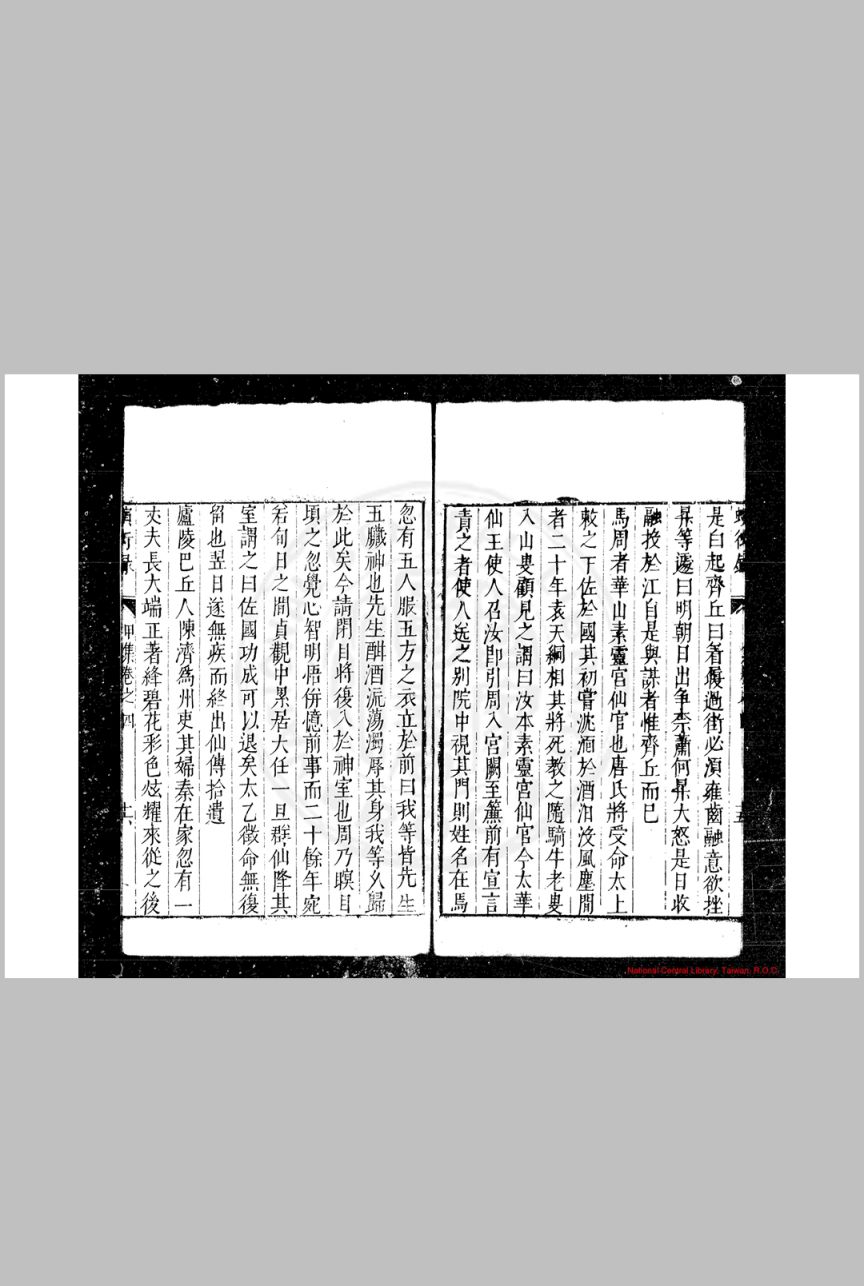 是白起齊丘曰著屐過街必須雍齒融意欲挫
昇等遽曰明朝日出爭奈蕭何昇大怒是日收
融投於江自是與謀者惟齊丘而已
馬周者華山素靈宮仙官也唐氏將受命太上
敕之下佐於國其初嘗沈湎於酒汩沒風塵間
者二十年袁天綱相其將死教之隨騎牛老叟
入山叟顧見之謂曰汝本素靈宮仙官今太華
仙王使人召汝即引周入宮闕至簾前有宣言
責之者使人送之別院中視其門則姓名在焉
忽有五人服五方之衣立於前曰我等皆先生
五臟神也先生酣酒流蕩濁辱其身我等久歸
於此矣今請閉目將復入於神室也周乃瞑目
頃之忽覺心智明悟併憶前事而二十餘年宛
若旬日之間貞觀中累居大任一旦群仙降其
室謂之曰佐國功成可以退矣太乙徵命無復
留也翌日遂無疾而終出仙傳拾遺
廬陵巴丘人陳濟為州吏其婦秦在家忽有一
丈夫長大端正著絳碧花彩色炫耀來從之後
卷之四
National Central Library, Taiwan, R.O.C.